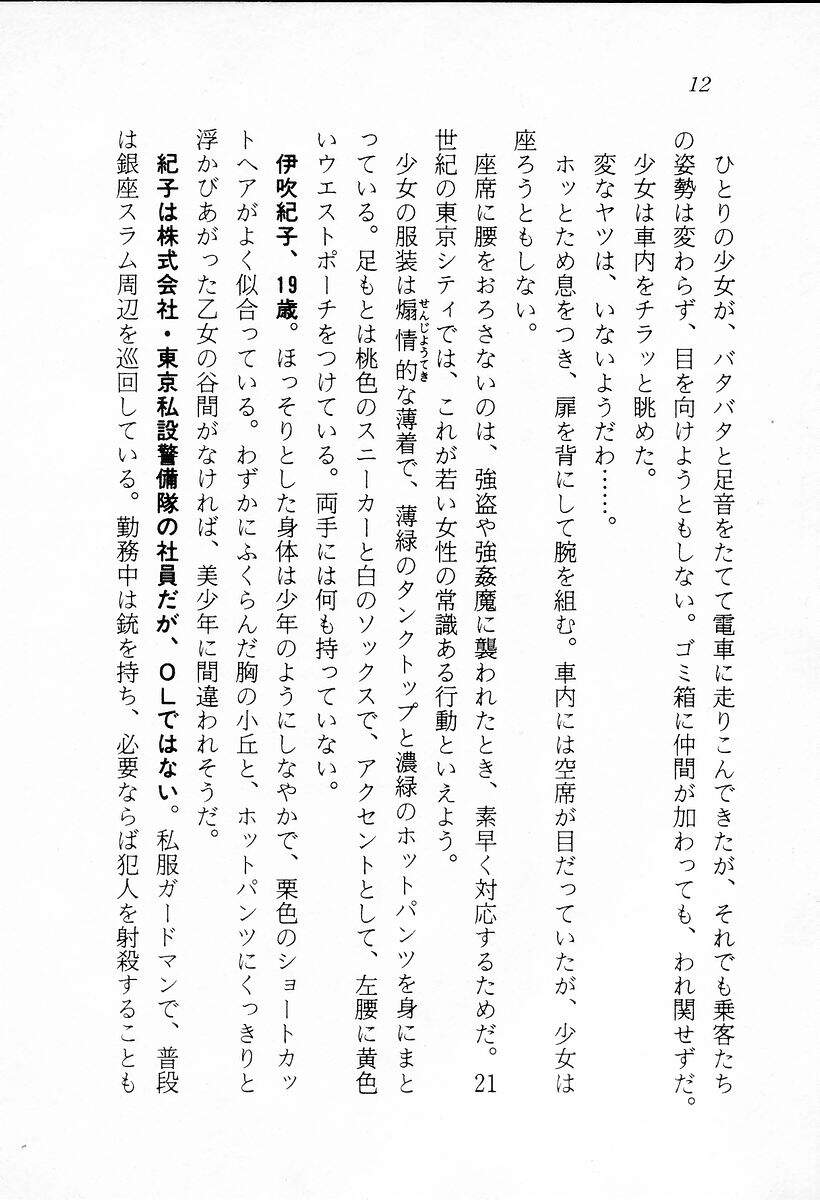 12
ひとりの少女が、バタバタと足音をたてて電車に走りこんできたが、それでも乗客たち
の姿勢は変わらず、目を向けようともしない。ゴミ箱に仲間が加わっても、われ関せずだ。
少女は車内をチラッと眺めた。
変なヤツは、いないようだわ……。
ホッとため息をつき、扉を背にして腕を組む。車内には空席が目だっていたが、少女は
座ろうともしない。
座席に腰をおろさないのは、強盗や強姦魔に襲われたとき、素早く対応するためだ。21
世紀の東京シティでは、これが若い女性の常識ある行動といえよう。
少女の服装は煽情的せんじょうてきな薄着で、薄緑のタンクトップと濃緑のホットパンツを身にまと
っている。足もとは桃色のスニーカーと白のソックスで、アクセントとして、左腰に黄色
いウエストポーチをつけている。両手には何も持っていない。
伊吹紀子、19歳。ほっそりとした身体は少年のようにしなやかで、栗色のショートカッ
トヘアがよく似合っている。わずかにふくらんだ胸の小丘と、ホットパンツにくっきりと
浮かびあがった乙女の谷間がなければ、美少年に間違われそうだ。
紀子は株式会社・東京私設警備隊の社員だが、OLではない。私服ガードマンで、普段
は銀座スラム周辺を巡回している。勤務中は銃を持ち、必要ならば犯人を射殺することも